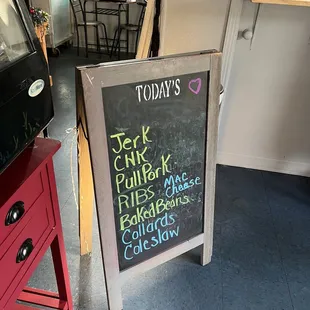 TODAY'S
Jerk
CNK
Pull Pork
RIBS
Mac
Cheese
Baked Beans
Collards
Coleslaw